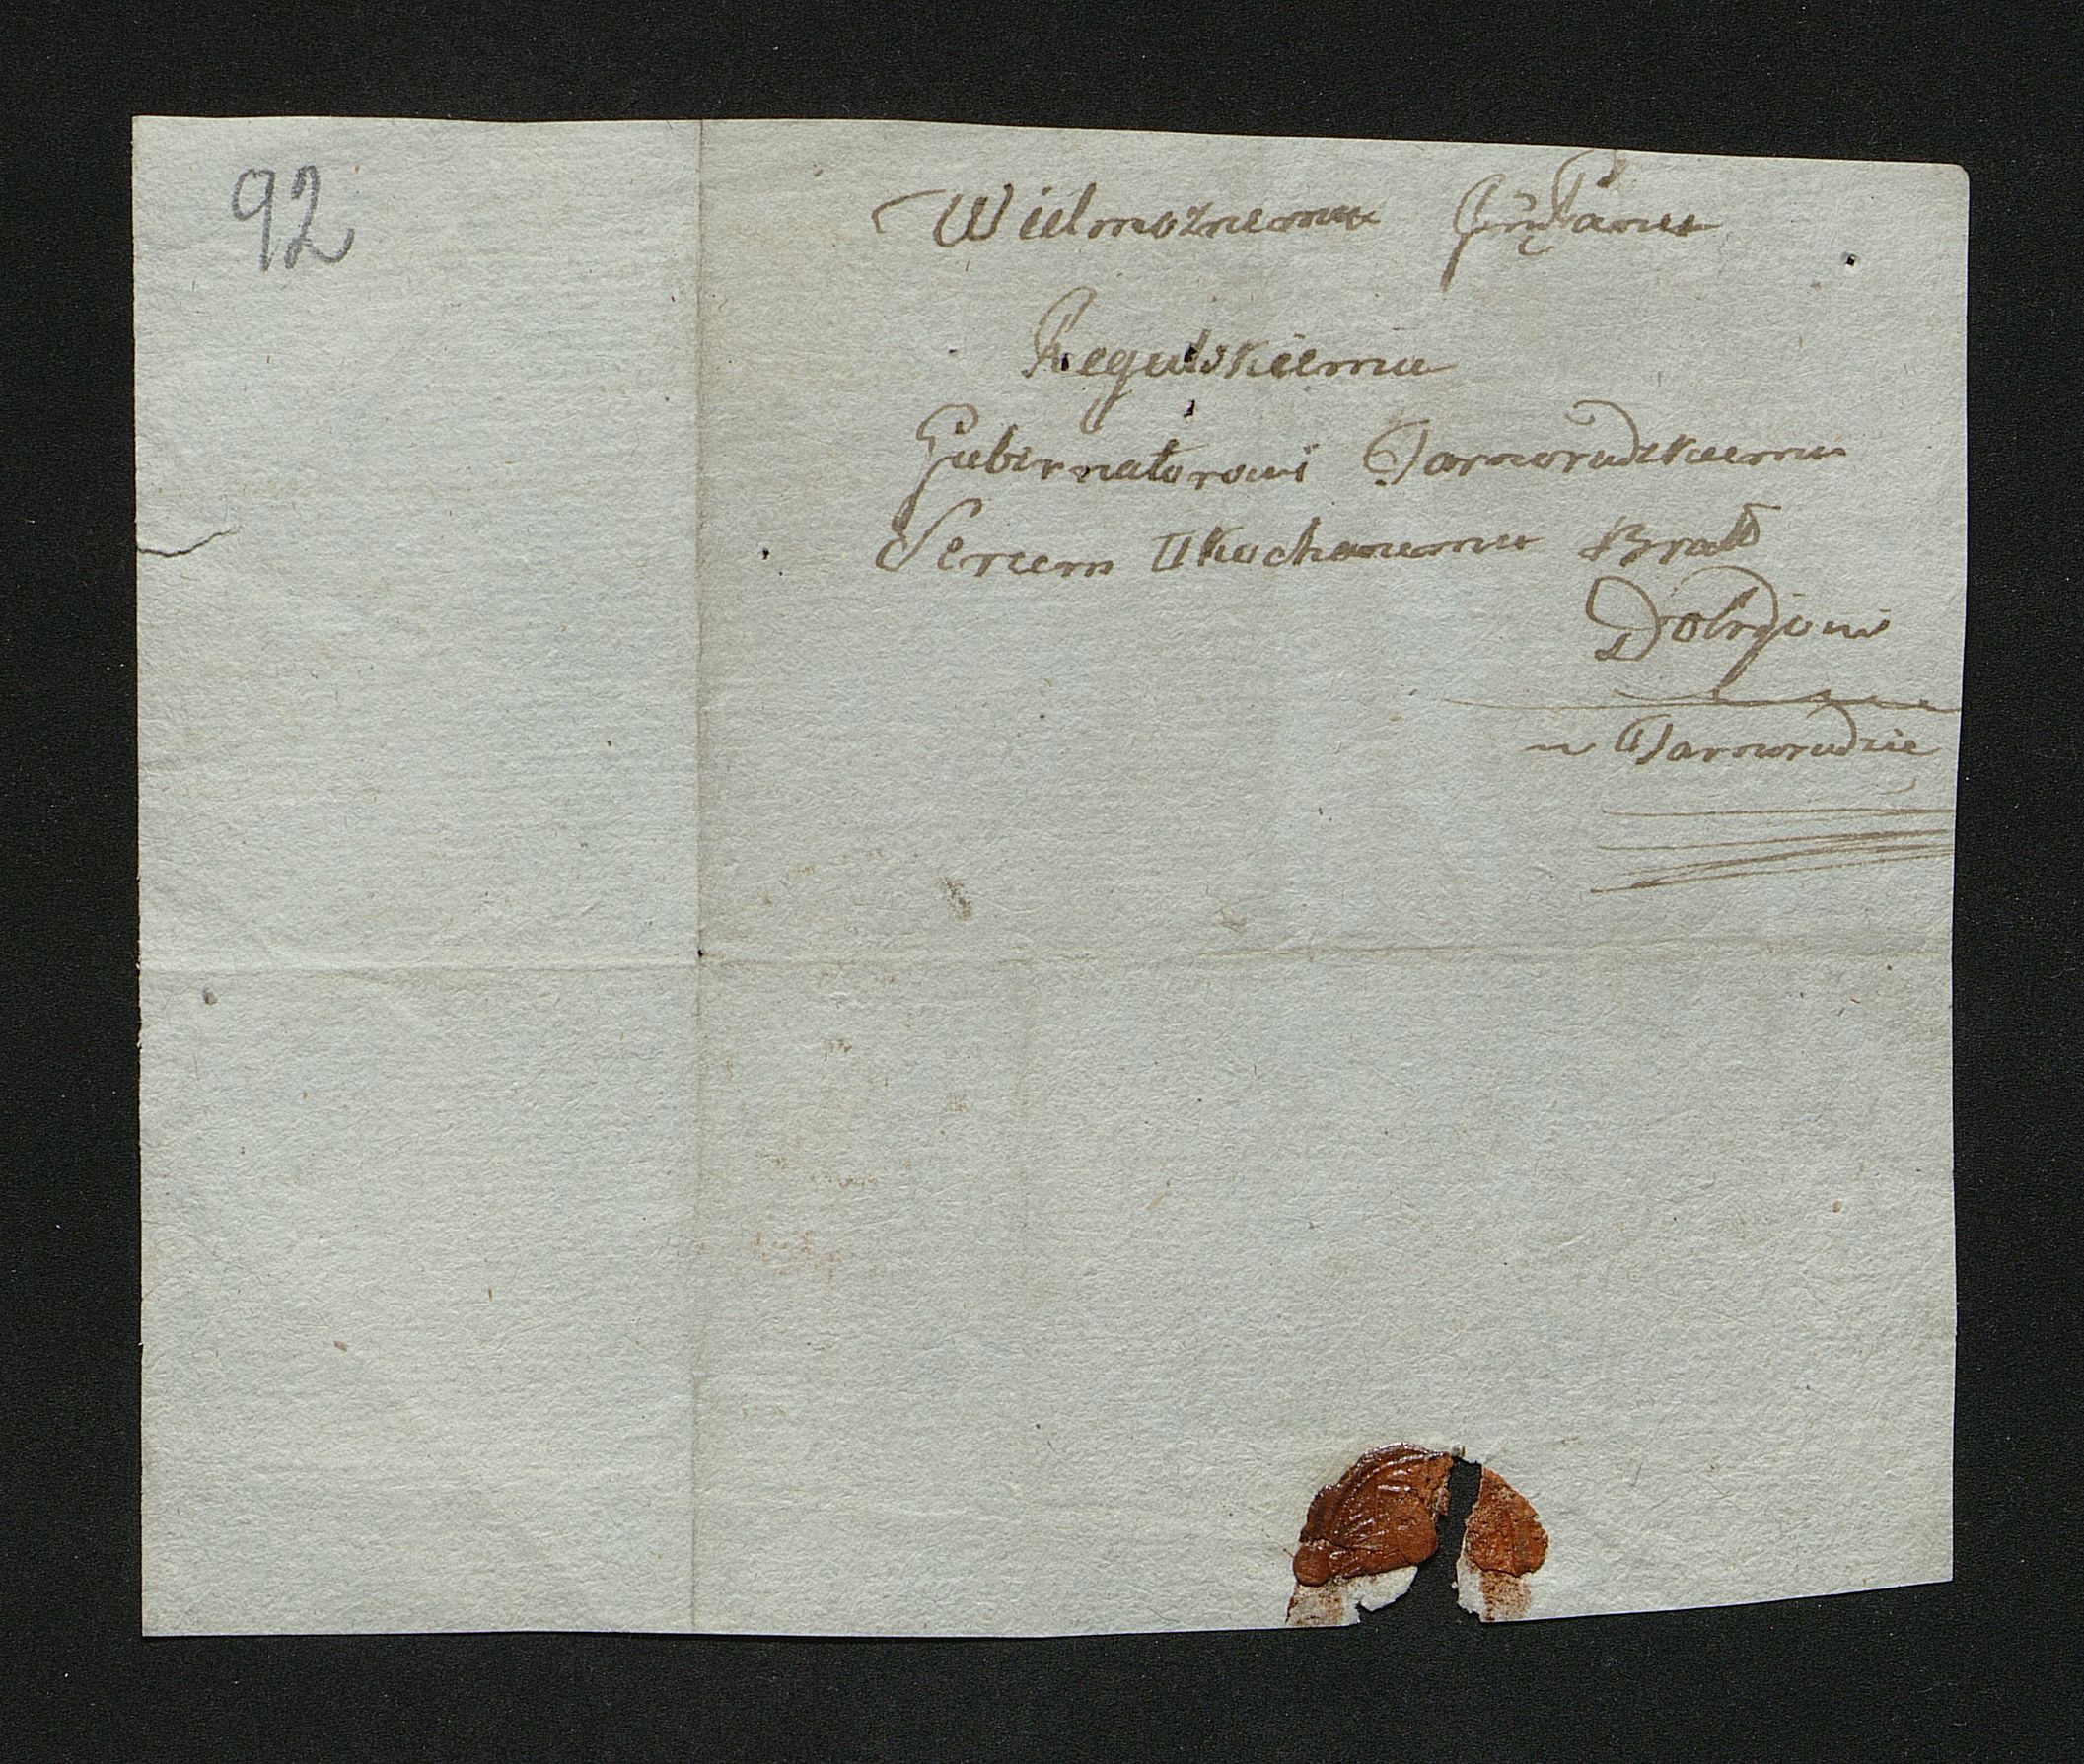 92
Wielmoznemu JmPanu
Regulskiemu
Gubernatorowi Tarnorudzkiemu
Sercem Ukochanemu Bratu
Dobrjowi
w Tarnorudzie